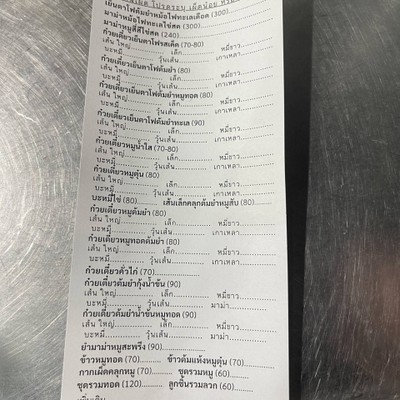 เย็นตาโฟต้มยำหม้อไฟทะเลเดือด (300)
มาม่าหม้อไฟทะเลไข่สด (300)
มาม่าหมูสีไข่สด (240)
ก๋วยเตี๋ยวเย็นตาโฟรสเด็ด (70-80)
เส้น ใหญ่ เล็ก หมี่ขาว
บะหมี่ วุ้นเส้น เกาเหลา
ก๋วยเตี๋ยวเย็นตาโฟต้มยำ (80)
เส้น ใหญ่ เล็ก หมี่ขาว
บะหมี่ วุ้นเส้น เกาเหลา
ก๋วยเตี๋ยวเย็นตาโฟต้มยำหมูทอด (80)
เส้น ใหญ่ เล็ก หมี่ขาว
บะหมี่ วุ้นเส้น เกาเหลา
ก๋วยเตี๋ยวเย็นตาโฟต้มยำทะเล (90)
เส้น ใหญ่ เล็ก หมี่ขาว
บะหมี่ วุ้นเส้น เกาเหลา
ก๋วยเตี๋ยวหมูน้ำใส (70-80)
เส้น ใหญ่ เล็ก หมี่ขาว
บะหมี่ วุ้นเส้น เกาเหลา
ก๋วยเตี๋ยวหมูตุ๋น (80)
เส้น ใหญ่ เล็ก หมี่ขาว
บะหมี่ วุ้นเส้น เกาเหลา
บะหมี่ไข่ (80) เส้นเล็กคลุกต้มยำหมูสับ (80)
ก๋วยเตี๋ยวหมูต้มยำ (80)
เส้น ใหญ่ เล็ก หมี่ขาว
บะหมี่ วุ้นเส้น เกาเหลา
ก๋วยเตี๋ยวหมูทอดต้มยำ (80)
เส้น ใหญ่ เล็ก หมี่ขาว
บะหมี่ วุ้นเส้น เกาเหลา
ก๋วยเตี๋ยวคั่วไก่ (70)
ก๋วยเตี๋ยวต้มยำกุ้งน้ำข้น (90)
เส้น ใหญ่ เล็ก หมี่ขาว
บะหมี่ วุ้นเส้น มาม่า
ก๋วยเตี๋ยวต้มยำน้ำข้นหมูทอด (90)
เส้น ใหญ่ เล็ก หมี่ขาว
บะหมี่ วุ้นเส้น มาม่า
ยำมาม่าหมูสะพรึง (90)
ข้าวหมูทอด (70) ข้าวต้มแห้งหมูตุ๋น (70)
กากเผ็ดคลุกหมู (70) ชุดรวมหมู (60)
ชุดรวมทอด (120) ลูกชิ้นรวมลวก (60)